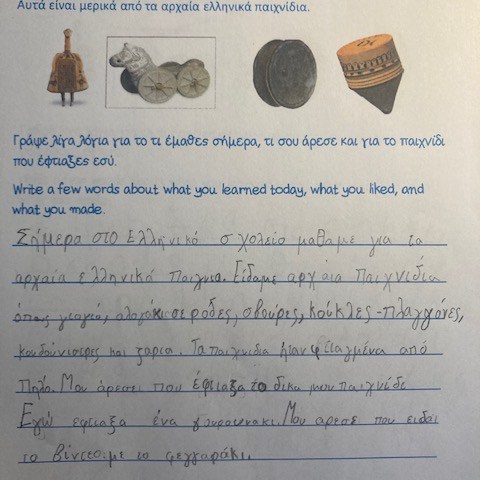 Αυτά είναι μερικά από τα αρχαία ελληνικά παιχνίδια.
Γράψε λίγα λόγια για το τι έμαθες σήμερα, τι σου άρεσε και για το παιχνίδι
που έφτιαξες εσύ.
Write a few words about what you learned today, what you liked, and
what you made.
Σήμερα στο Ελληνικό σχολείο μαθαμε για τα
αρχαία ελληνικά παιχνια. Είδαμε αρχαια παιχνιδια
όπως γιογιό, αλογάκι σε ρόδες, σβούρες, κούκλες-πλαγγόνες,
κουδουνιστρες και ζαρια. Τα παιχνιδια ήταν φτιαγμένα από
πηλό. Μου άρεσει που έφτιαξα το δικο μου παιχνιδι
Εγώ εφτιαξα ένα γουρουνακι. Μου αρεσε που ειδαι
το βίντεο με το φεγγαράκι.